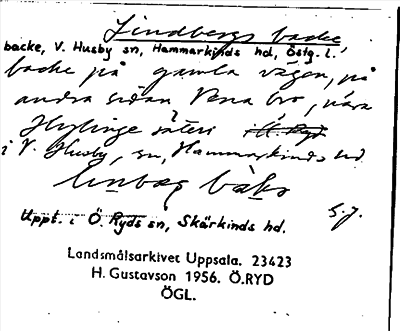 Lindbergs backe,
backe, V. Husby sn, Hammarkinds hd, Östg. l.
backe på gamla vägen, på
andra sidan Vena bro, nära
Hylinge säteri
i V. Husby, sn, Hammarkinds hd.
Uppt. i Ö. Ryds sn, Skärkinds hd.
G.J.
Landsmålsarkivet Uppsala. 23423
H. Gustavson 1956. Ö.RYD
ÖGL.